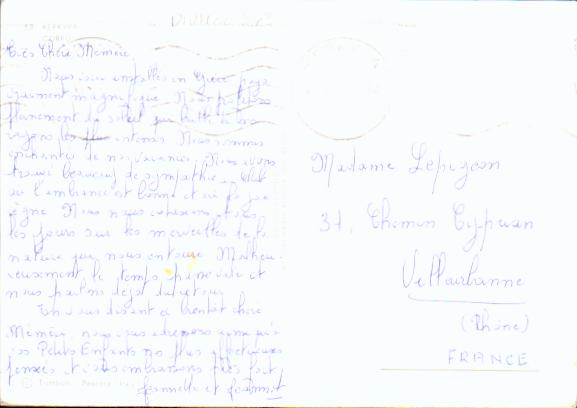 ΚΕΡΚΥΡΑ
Très Chère Mémère,
Nous voici installés en Grèce pays
vraiment magnifique. Nous profitons
pleinement du soleil qui brille à
rayons les plus intenses. Nous sommes
enchantés de nos vacances. Nous avons
trouvé beaucoup de sympathie. Club
où l'ambiance est bonne et où
règne. Nous nous extasions tous
les jours sur les merveilles de la
nature qui nous entoure. Malheu-
reusement le temps passe vite et
nous parlons déjà du retour.
En vous disant à bientôt chère
Mémère, nous vous adressons ainsi
vos Petits Enfants nos plus affectueuses
pensées et vous embrassons très fort
Jeannette et
Madame Lepigeon
31, Chemin Cyprian
Villeurbanne
(Rhône)
FRANCE